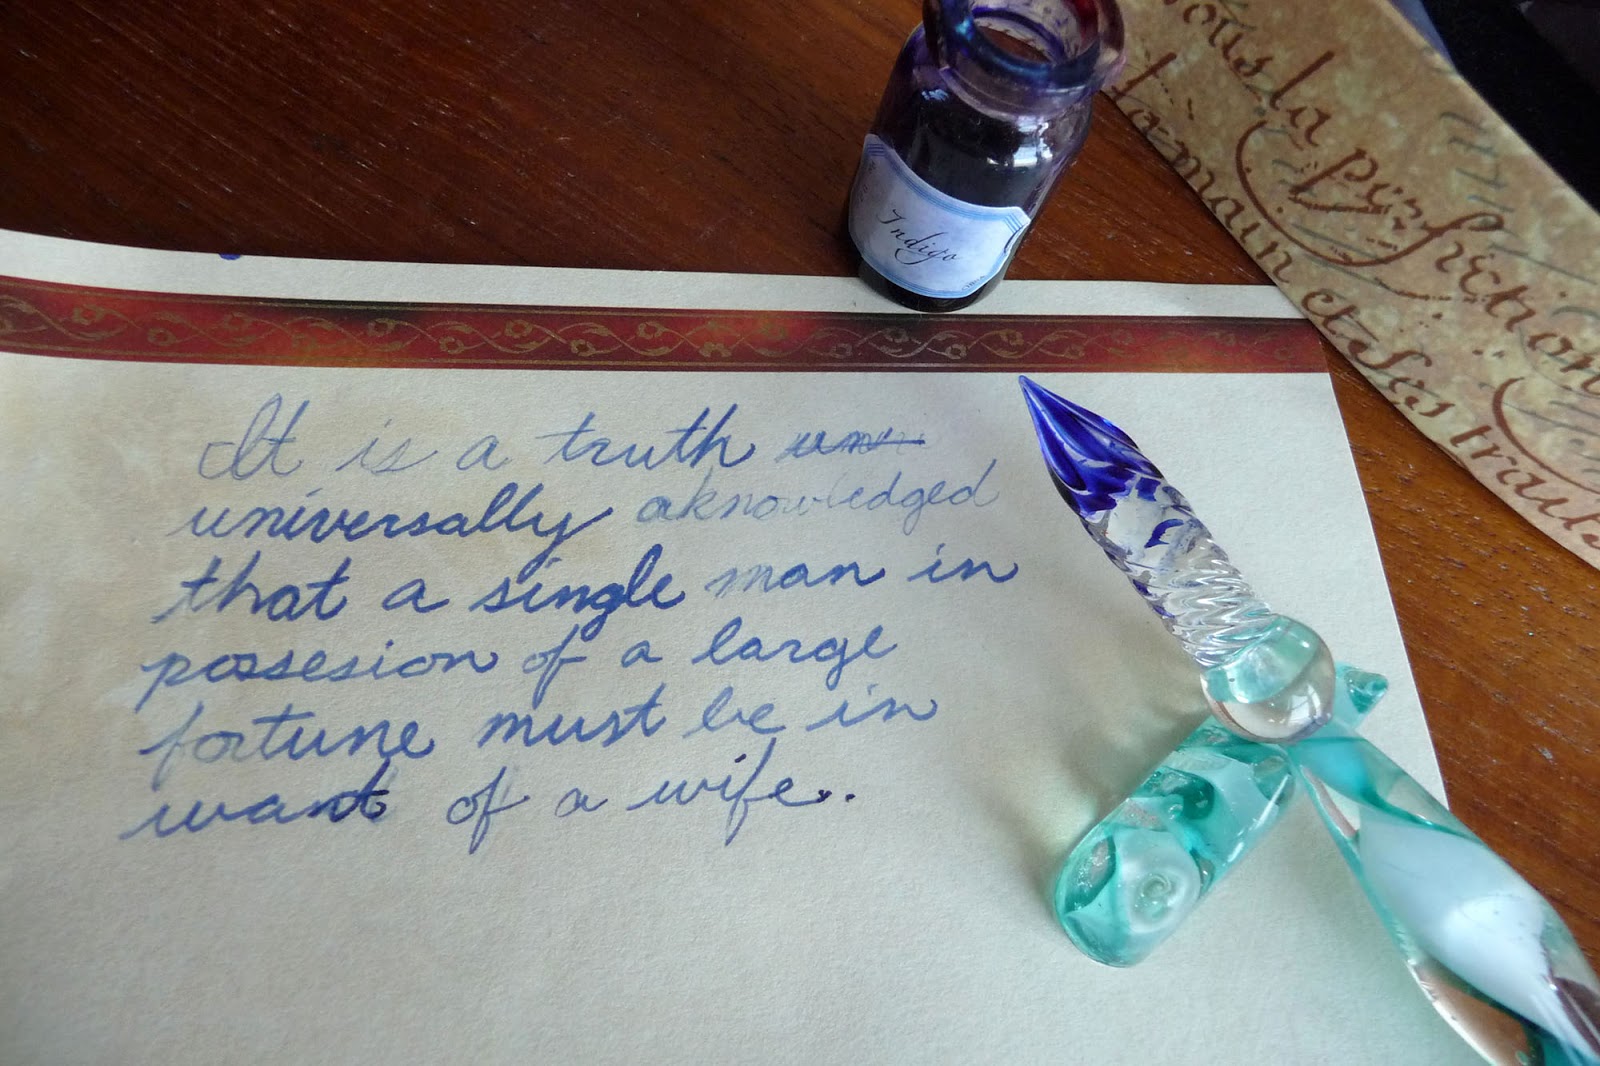 It is a truth un
universally aknowledged
that a single man in
possesion of a large
fortune must be in
want of a wife..
Indigo
vous la perfection
la main et ses traits